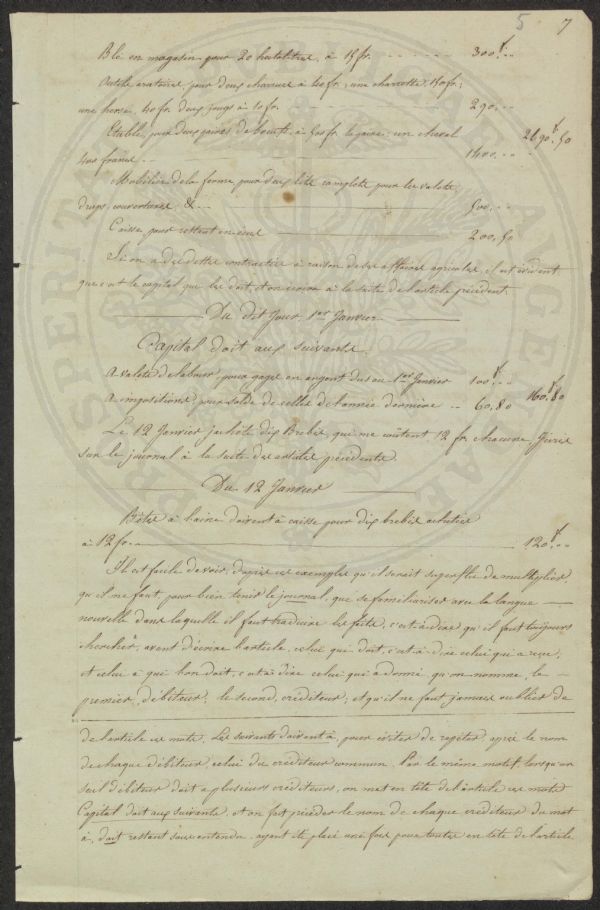 5 7
Blé en magasin pour 20 hectolitres, à 15 fr. 300.f "
Outils aratoires pour deux charrues à 40 fr; une charrette, 150 fr;
une herse, 40 fr. deux jougs à 10 fr. 290. "
Etable, pour deux paires de boeufs à 500 fr. la paire; un cheval 2690.f 50
400 francs. 1400. "
Mobilier de la ferme pour deux lits complets pour les valets,
draps, couvertures, &. 500. "
Caisse, pour restant en icelle 200,50
Si on a des dettes contractées à raison de ses affaires agricoles, il est évident
que c'est le capital qui les doit, et on écrira à la suite de l'article précédent.
Du dit Jour 1er Janvier
Capital doit aux suivants.
A valets de labour, pour gages en argent dus au 1er Janvier 100.f "
A impositions, pour solde de celles de l'année dernière 60,80 160.f 80
Le 12 Janvier j'achète dix Brebis, qui me coûtent 12 fr. chacune, j'écris
sur le journal à la suite des articles précédents.
Du 12 Janvier
Bêtes à laine doivent à caisse pour dix brebis achetées
à 12 fr. 120.f "
Il est facile de voir, d'après ces exemples qu'il serait superflu de multiplier
qu'il ne faut, pour bien tenir le journal, que se familiariser avec la langue
nouvelle dans laquelle il faut traduire les faits, c'est-à-dire qu'il faut toujours
chercher, avant d'écrire l'article, celui qui doit, c'est-à-dire celui qui a reçu,
et celui à qui l'on doit, c'est-à-dire celui qui a donné, qu'on nomme, le
premier, débiteur, le second, créditeur; et qu'il ne faut jamais oublier de
de l'article ces mots, Les suivants doivent à, pour éviter de répéter après le nom
de chaque débiteur, celui du créditeur commun. Par le même motif, lorsqu'un
seul débiteur doit à plusieurs créditeurs, on met en tête de l'article ces mots
Capital doit aux suivants, et on fait précéder le nom de chaque créditeur du mot
à, doit restant sous-entendu, ayant été placé une fois pour toutes en tête de l'article